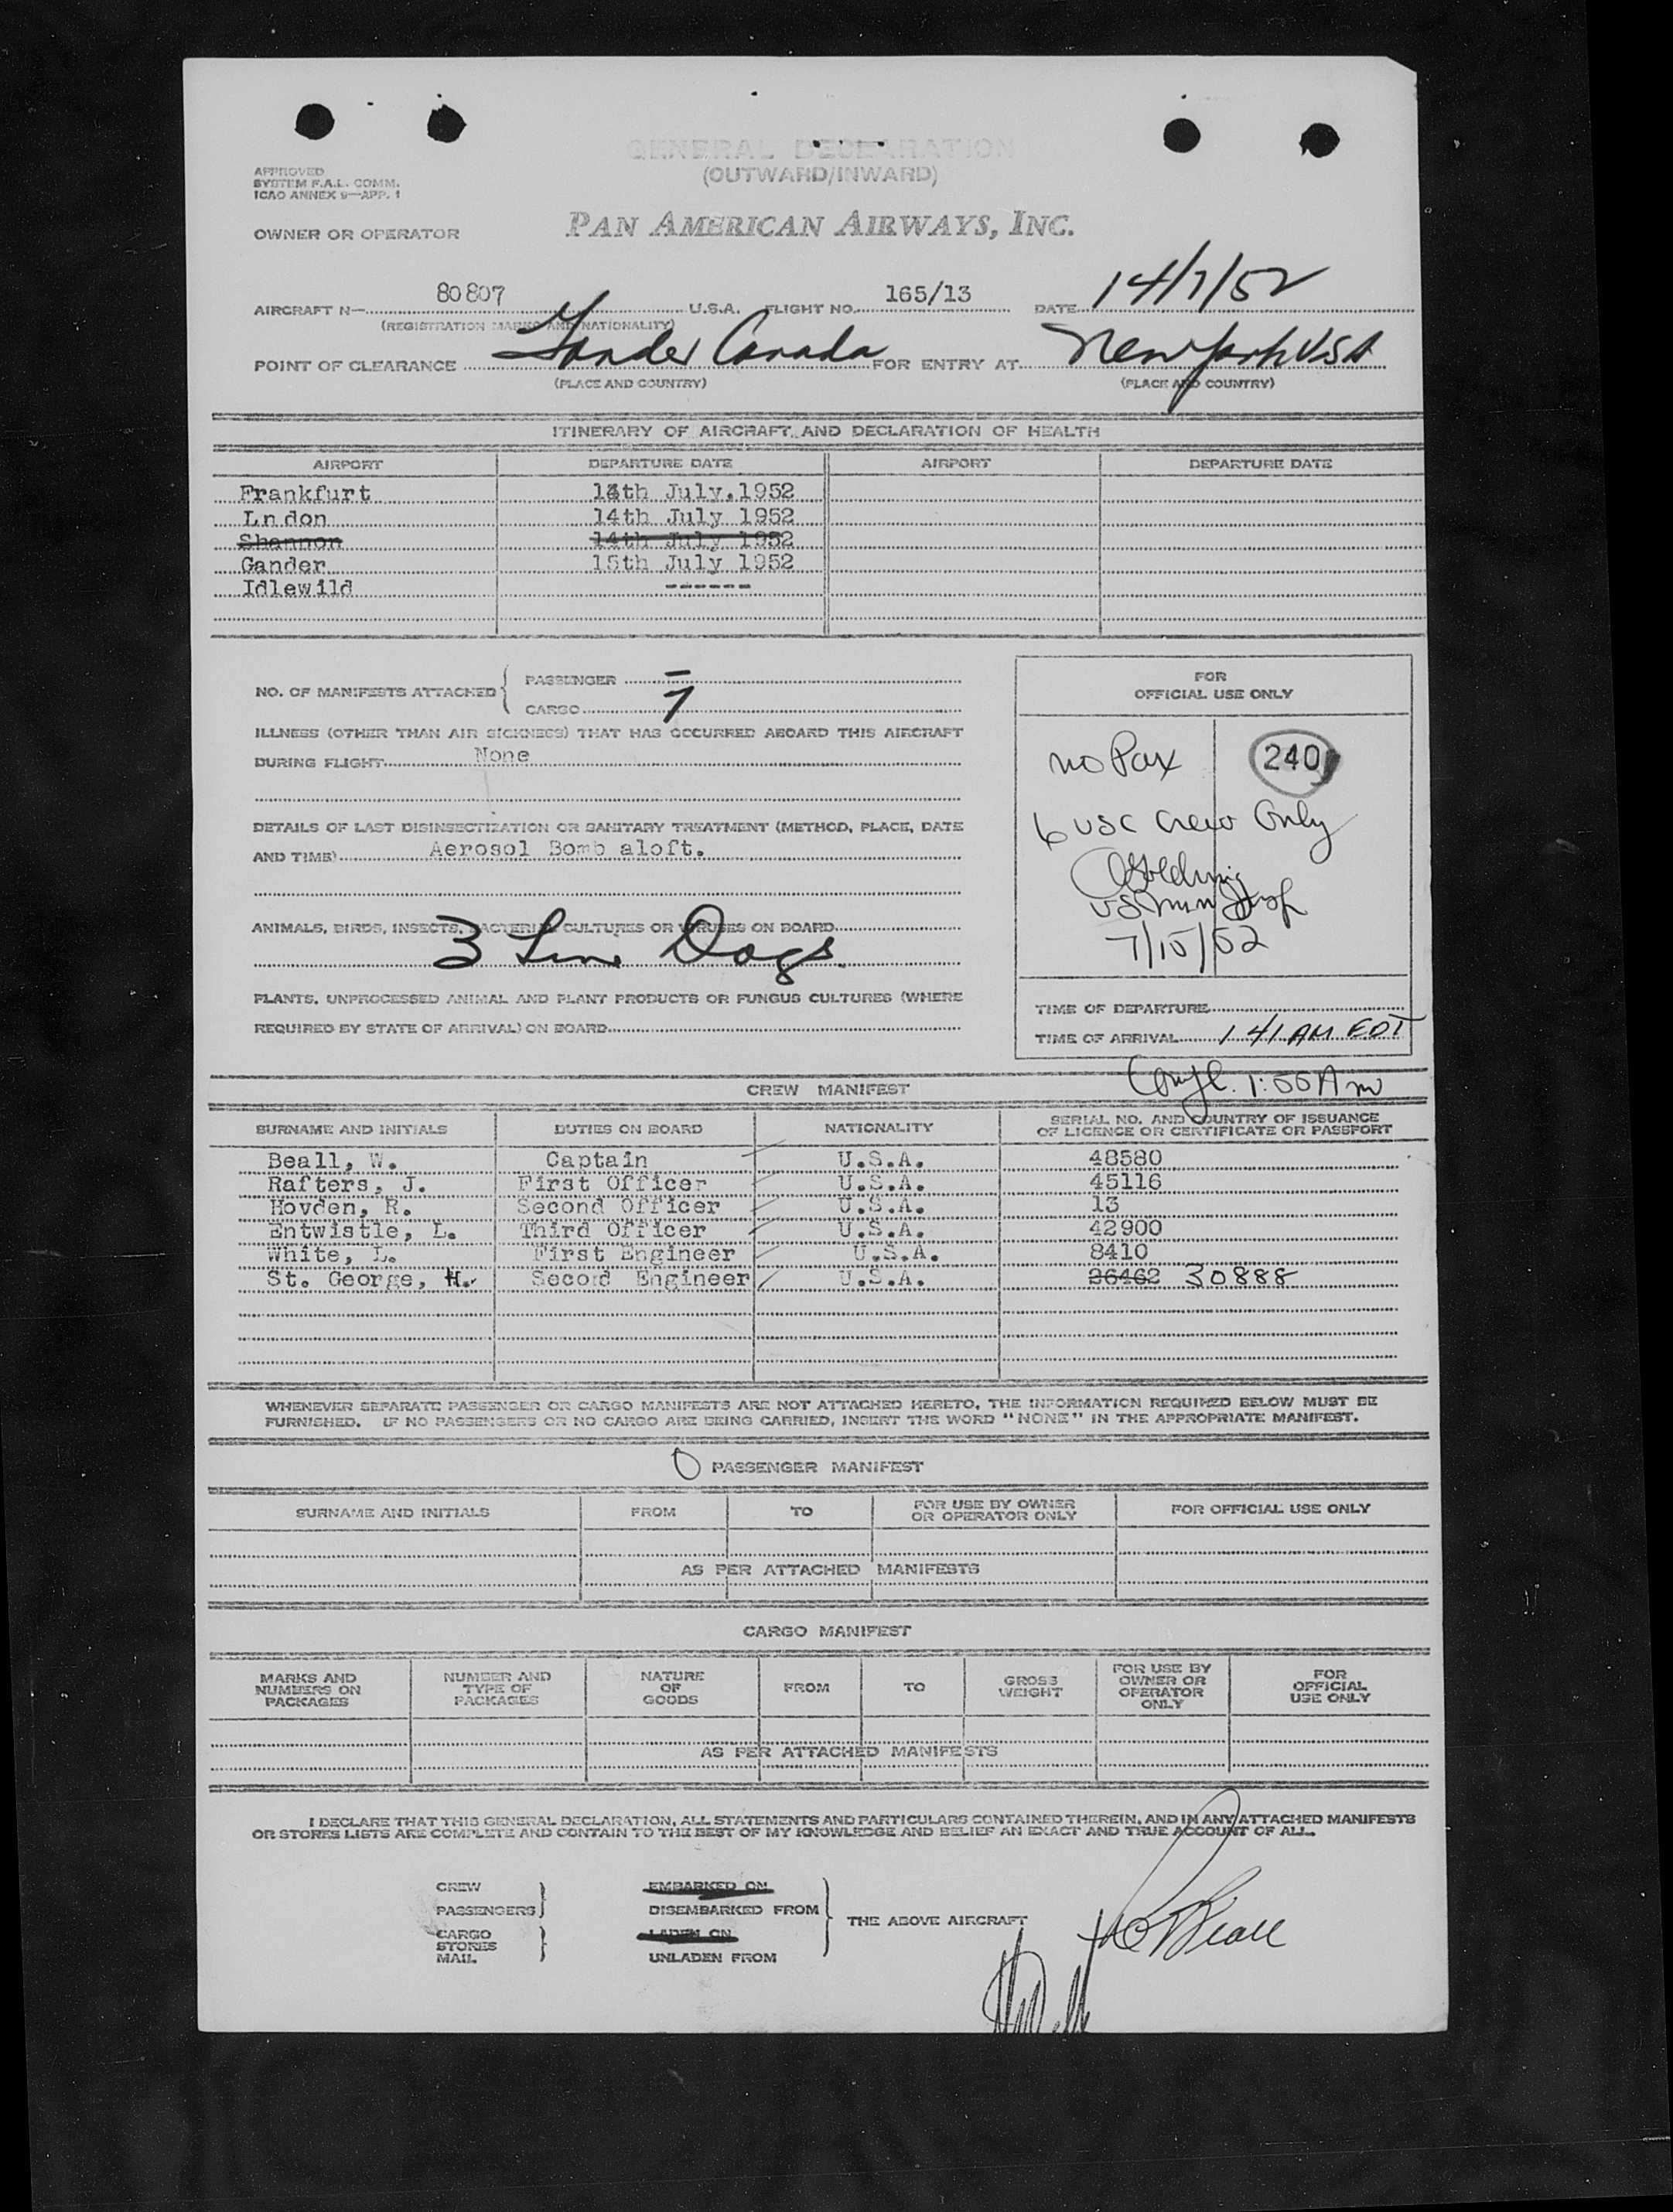 GENERAL DECLARATION
(OUTWARD/INWARD)
APPROVED
SYSTEM F.A.L. COMM.
ICAO ANNEX 9—APP. 1
OWNER OR OPERATOR PAN AMERICAN AIRWAYS, INC.
AIRCRAFT N— 80807 U.S.A. FLIGHT NO. 165/13 DATE 14/7/52
(REGISTRATION MARKS AND NATIONALITY)
POINT OF CLEARANCE Gander Canada FOR ENTRY AT New York USA
(PLACE AND COUNTRY) (PLACE AND COUNTRY)
ITINERARY OF AIRCRAFT AND DECLARATION OF HEALTH
AIRPORT DEPARTURE DATE AIRPORT DEPARTURE DATE
Frankfurt 14th July.1952
Lndon 14th July 1952
Shannon 14th July 1952
Gander 15th July 1952
Idlewild ------
NO. OF MANIFESTS ATTACHED { PASSENGER —
CARGO 7
ILLNESS (OTHER THAN AIR SICKNESS) THAT HAS OCCURRED ABOARD THIS AIRCRAFT
DURING FLIGHT None
DETAILS OF LAST DISINSECTIZATION OR SANITARY TREATMENT (METHOD, PLACE, DATE
AND TIME) Aerosol Bomb aloft.
ANIMALS, BIRDS, INSECTS, BACTERIAL CULTURES OR VIRUSES ON BOARD
3 Live Dogs
PLANTS, UNPROCESSED ANIMAL AND PLANT PRODUCTS OR FUNGUS CULTURES (WHERE
REQUIRED BY STATE OF ARRIVAL) ON BOARD
FOR
OFFICIAL USE ONLY
no Pax 240
6 USC Crew Only
US Imm Insp
7/15/52
TIME OF DEPARTURE
TIME OF ARRIVAL 1 41 AM EDT
Compl. 1:55 Am
CREW MANIFEST
SURNAME AND INITIALS DUTIES ON BOARD NATIONALITY SERIAL NO. AND COUNTRY OF ISSUANCE
OF LICENCE OR CERTIFICATE OR PASSPORT
Beall, W. Captain U.S.A. 48580
Rafters, J. First Officer U.S.A. 45116
Hovden, R. Second Officer U.S.A. 13
Entwistle, L. Third Officer U.S.A. 42900
White, L. First Engineer U.S.A. 8410
St. George, H. Second Engineer U.S.A. 26462 30888
WHENEVER SEPARATE PASSENGER OR CARGO MANIFESTS ARE NOT ATTACHED HERETO, THE INFORMATION REQUIRED BELOW MUST BE
FURNISHED. IF NO PASSENGERS OR NO CARGO ARE BEING CARRIED, INSERT THE WORD "NONE" IN THE APPROPRIATE MANIFEST.
0 PASSENGER MANIFEST
SURNAME AND INITIALS FROM TO FOR USE BY OWNER
OR OPERATOR ONLY FOR OFFICIAL USE ONLY
AS PER ATTACHED MANIFESTS
CARGO MANIFEST
MARKS AND
NUMBERS ON
PACKAGES NUMBER AND
TYPE OF
PACKAGES NATURE
OF
GOODS FROM TO GROSS
WEIGHT FOR USE BY
OWNER OR
OPERATOR
ONLY FOR
OFFICIAL
USE ONLY
AS PER ATTACHED MANIFESTS
I DECLARE THAT THIS GENERAL DECLARATION, ALL STATEMENTS AND PARTICULARS CONTAINED THEREIN, AND IN ANY ATTACHED MANIFESTS
OR STORES LISTS ARE COMPLETE AND CONTAIN TO THE BEST OF MY KNOWLEDGE AND BELIEF AN EXACT AND TRUE ACCOUNT OF ALL.
CREW EMBARKED ON
PASSENGERS DISEMBARKED FROM
THE ABOVE AIRCRAFT W Beall
CARGO LADEN ON
STORES
MAIL UNLADEN FROM